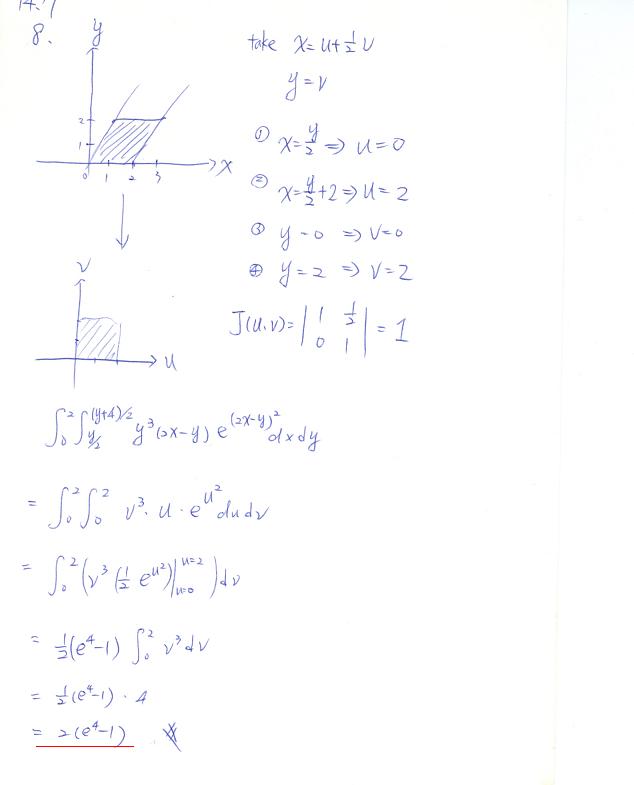 14.7
8.
take x = u + 1/2 v
y = v
① x = y/2 ⇒ u = 0
② x = y/2 + 2 ⇒ u = 2
③ y - 0 ⇒ v = 0
④ y = 2 ⇒ v = 2
J(u,v) = | 1 1/2 |
| 0 1 | = 1
y
2
1
0 1 2 3 x
v
u
∫₀² ∫_{y/2}^{(y+4)/2} y³(2x-y) e^{(2x-y)²} dx dy
= ∫₀² ∫₀² v³ · u · e^{u²} du dv
= ∫₀² (v³ (1/2 e^{u²})|_{u=0}^{u=2}) dv
= 1/2(e⁴-1) ∫₀² v³ dv
= 1/2(e⁴-1) · 4
= 2(e⁴-1)